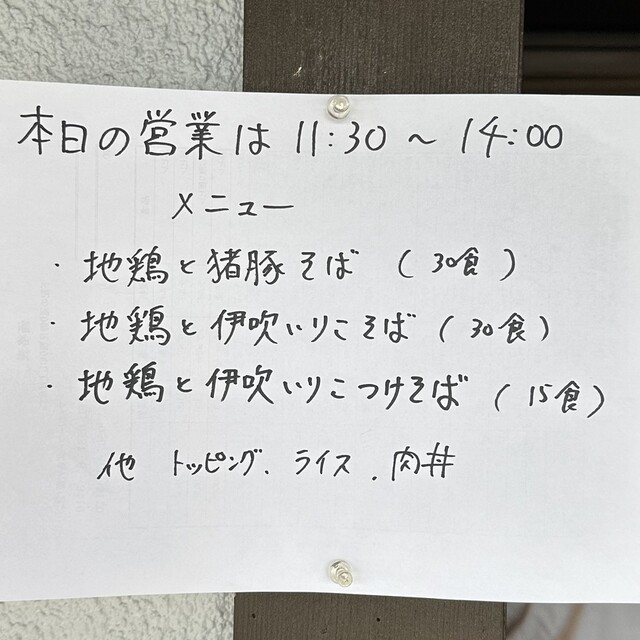 本日の営業は 11:30 ~ 14:00
メニュー
・地鶏と猪豚そば (30食)
・地鶏と伊吹いりこそば (30食)
・地鶏と伊吹いりこつけそば (15食)
他 トッピング、ライス、肉丼